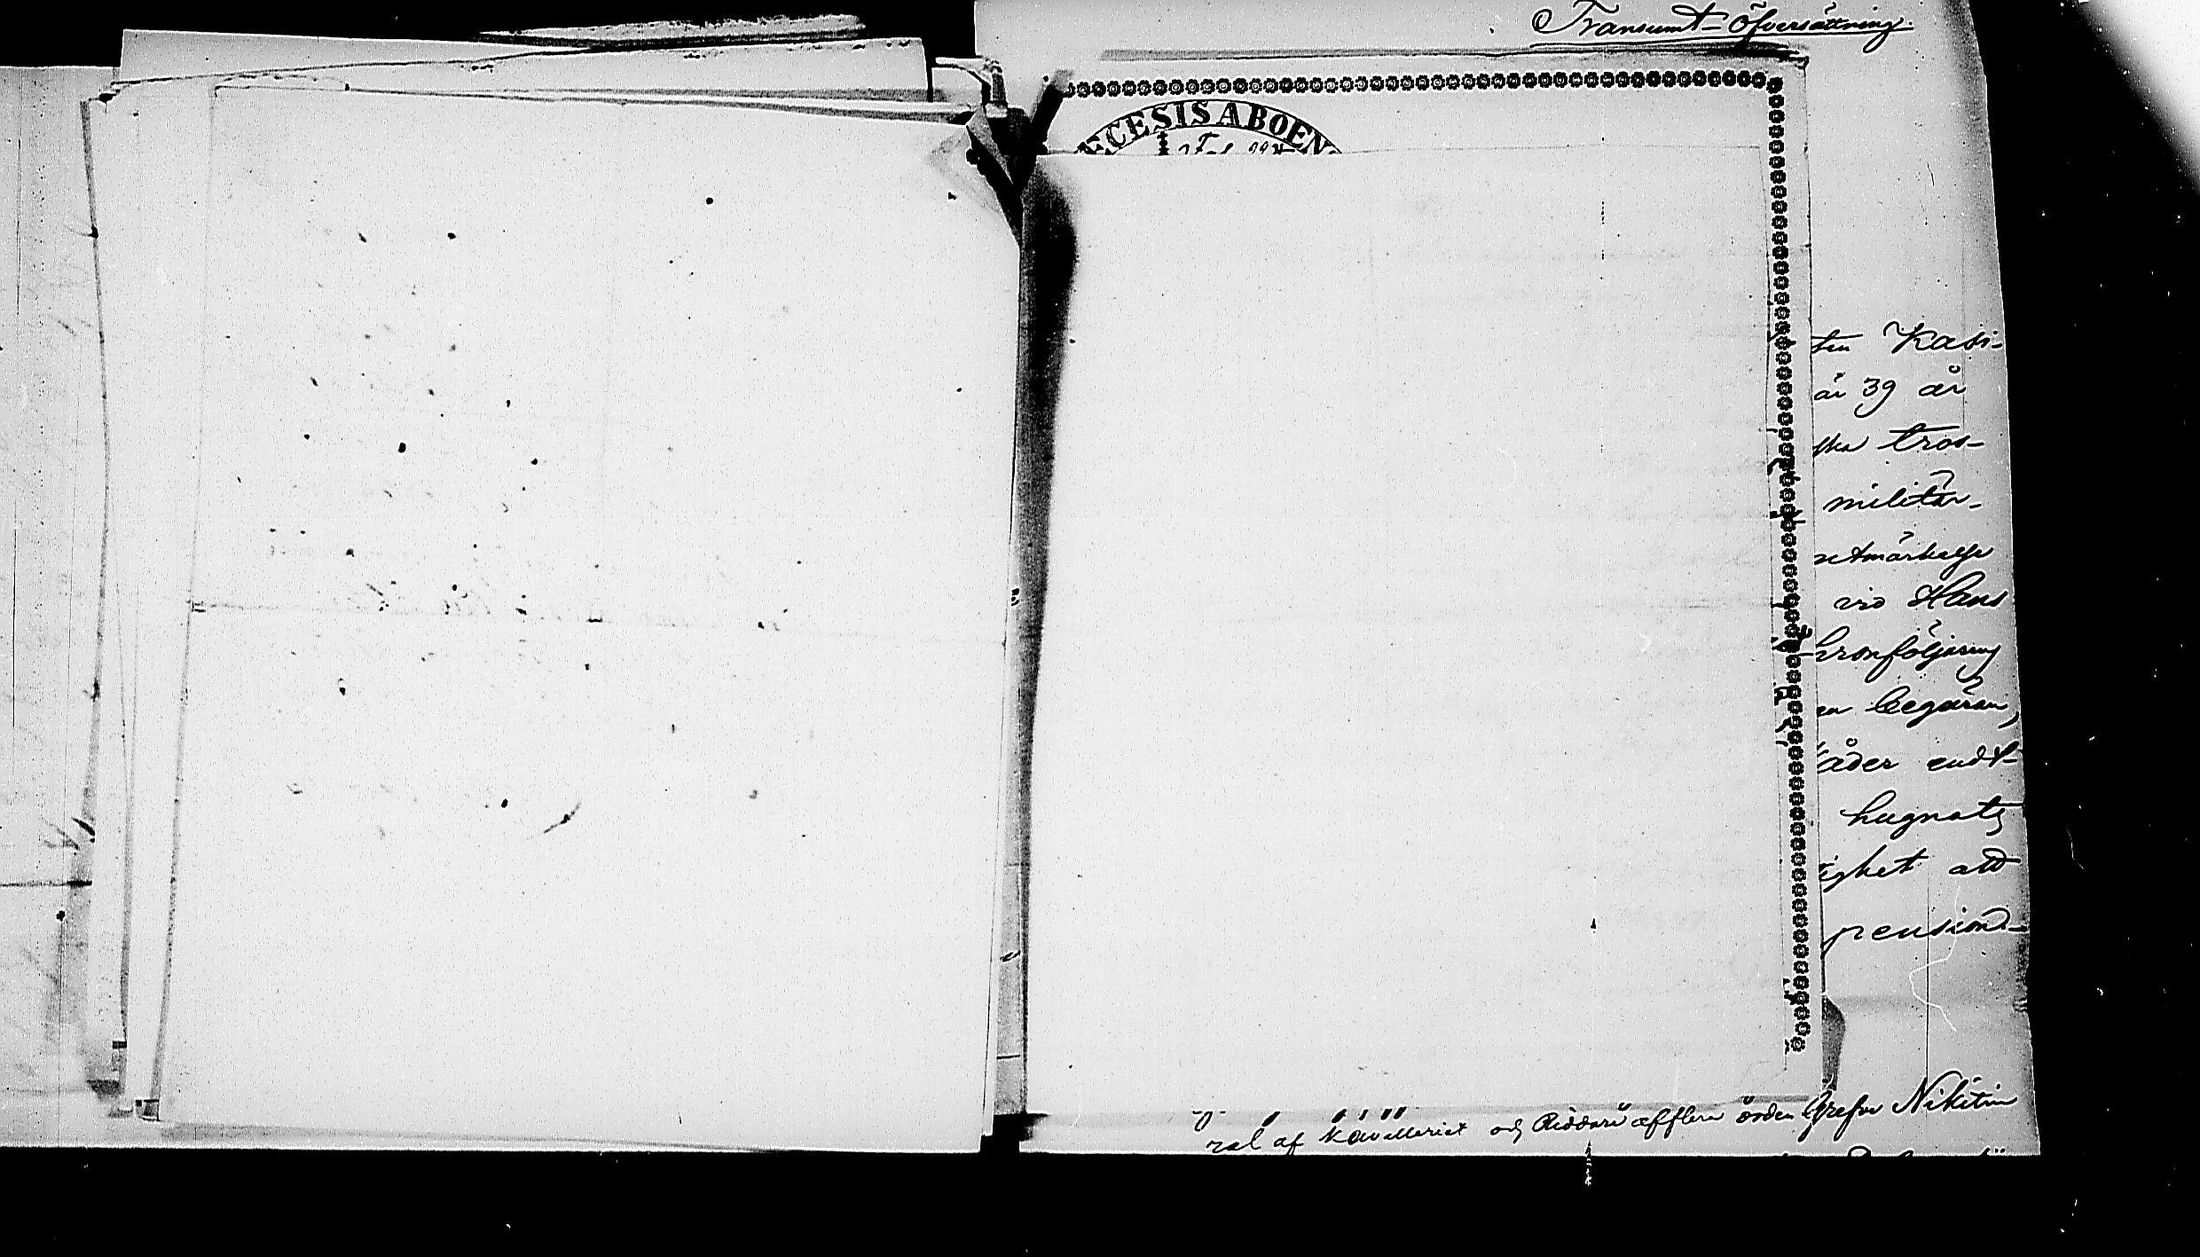 Transumt Öfversättning.
ECESIS ABOEN
ten Kasi-
är 39 år
ska tros-
militär-
vid Hans
hronföljareng
en begäran,
råder endt-
hugnats
ighet att
pensiond-
ral af Kavalleriet och Riddare af flera orden Grefve Nikitin